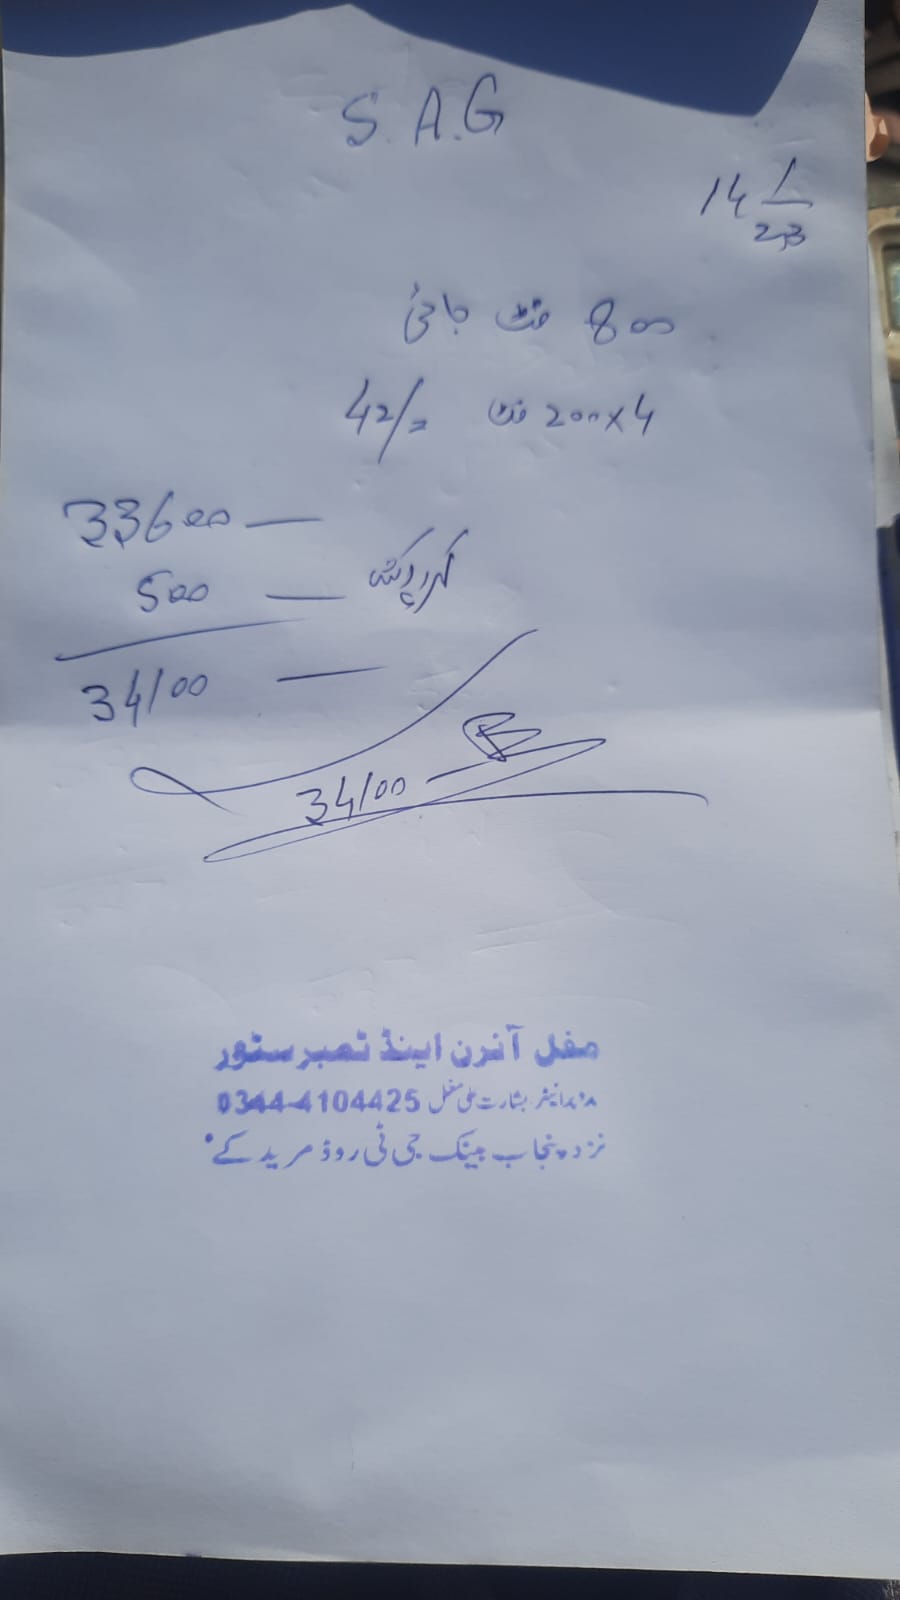 S.A.G
14 1/23
800 فٹ جالی
200x4 فٹ 42/=
33600 —
500 — کرایہ رکشہ
34100 —
34100 —
مغل آئرن اینڈ ٹمبر سٹور
پروپرائیٹر بشارت علی مغل 0344-4104425
نزد پنجاب بینک جی ٹی روڈ مریدکے